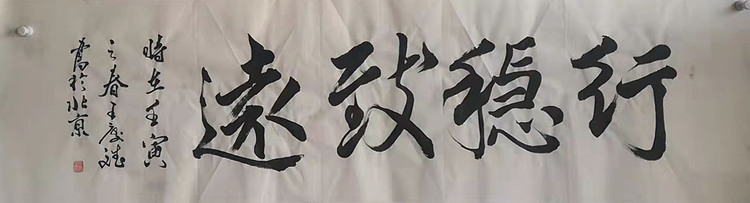 行稳致遠
時在壬寅
之春王
書於北京